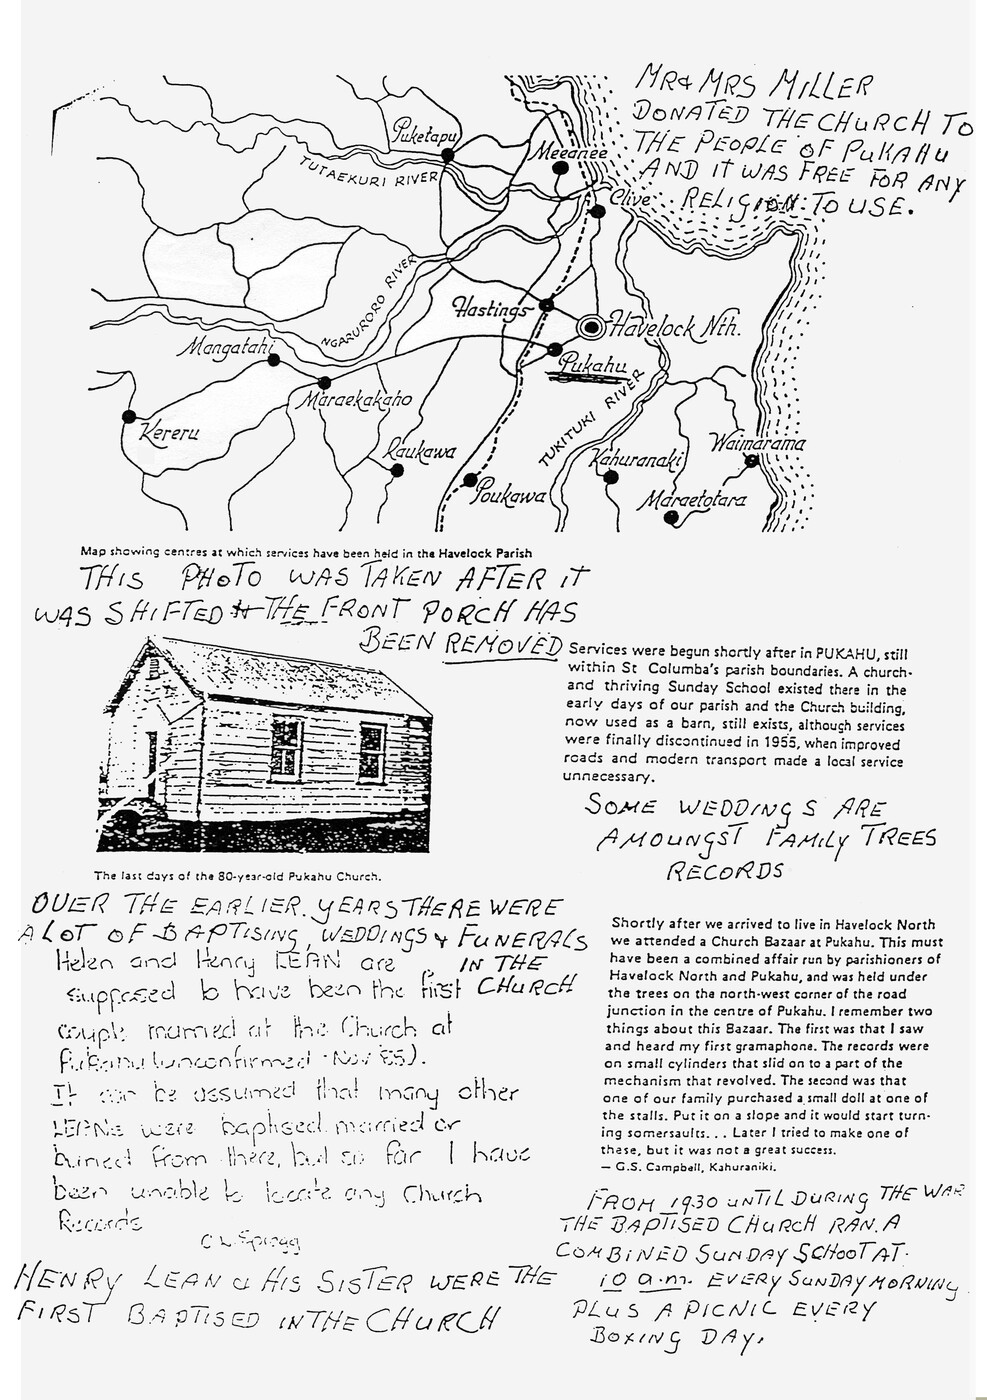 MR & MRS MILLER
DONATED THE CHURCH TO
THE PEOPLE OF PUKAHU
AND IT WAS FREE FOR ANY
RELIGION TO USE.
Puketapu
TUTAEKURI RIVER
Meeanee
Clive
NGARURORO RIVER
Hastings
Havelock Nth.
Mangatahi
Pukahu
Maraekakaho
TUKITUKI RIVER
Kereru
Raukawa
Kahuranaki
Waimarama
Poukawa
Maraetotara
Map showing centres at which services have been held in the Havelock Parish
THIS PHOTO WAS TAKEN AFTER IT
WAS SHIFTED THE FRONT PORCH HAS
BEEN REMOVED
Services were begun shortly after in PUKAHU, still
within St Columba's parish boundaries. A church-
and thriving Sunday School existed there in the
early days of our parish and the Church building,
now used as a barn, still exists, although services
were finally discontinued in 1955, when improved
roads and modern transport made a local service
unnecessary.
SOME WEDDINGS ARE
AMOUNGST FAMILY TREES
RECORDS
The last days of the 80-year-old Pukahu Church.
OVER THE EARLIER. YEARS THERE WERE
A LOT OF BAPTISING, WEDDINGS & FUNERALS
IN THE
CHURCH
Helen and Henry LEAN are
supposed to have been the first
couple married at the Church at
Pukahu (unconfirmed - Nov 85).
It can be assumed that many other
LEANs were baptised, married or
buried from there, but so far I have
been unable to locate any Church
Records
C L Spragg
HENRY LEAN & HIS SISTER WERE THE
FIRST BAPTISED IN THE CHURCH
Shortly after we arrived to live in Havelock North
we attended a Church Bazaar at Pukahu. This must
have been a combined affair run by parishioners of
Havelock North and Pukahu, and was held under
the trees on the north-west corner of the road
junction in the centre of Pukahu. I remember two
things about this Bazaar. The first was that I saw
and heard my first gramaphone. The records were
on small cylinders that slid on to a part of the
mechanism that revolved. The second was that
one of our family purchased a small doll at one of
the stalls. Put it on a slope and it would start turn-
ing somersaults. . . Later I tried to make one of
these, but it was not a great success.
— G.S. Campbell, Kahuraniki.
FROM 1930 UNTIL DURING THE WAR
THE BAPTISED CHURCH RAN. A
COMBINED SUNDAY SCHOOL AT.
10 a.m. EVERY SUNDAY MORNING
PLUS A PICNIC EVERY
BOXING DAY.